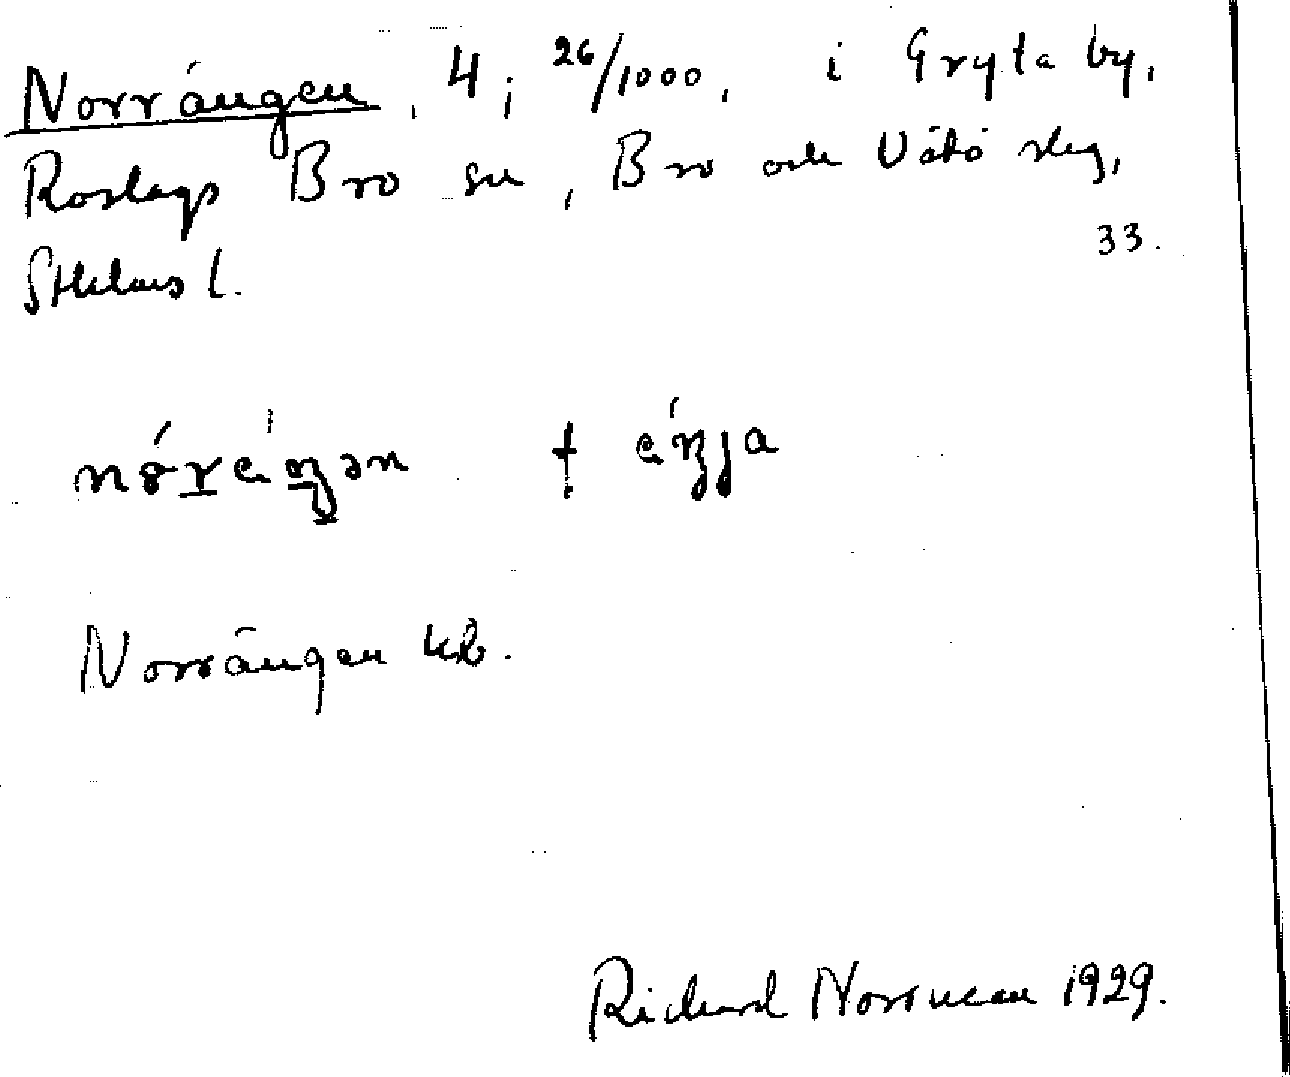 Norrängen, 4; 26/1000, i Gryta by,
Roslags Bro sn, Bro och Vätö skg,
33.
Sthlms l.
Norrängen kb.
Richard Norrman 1929.